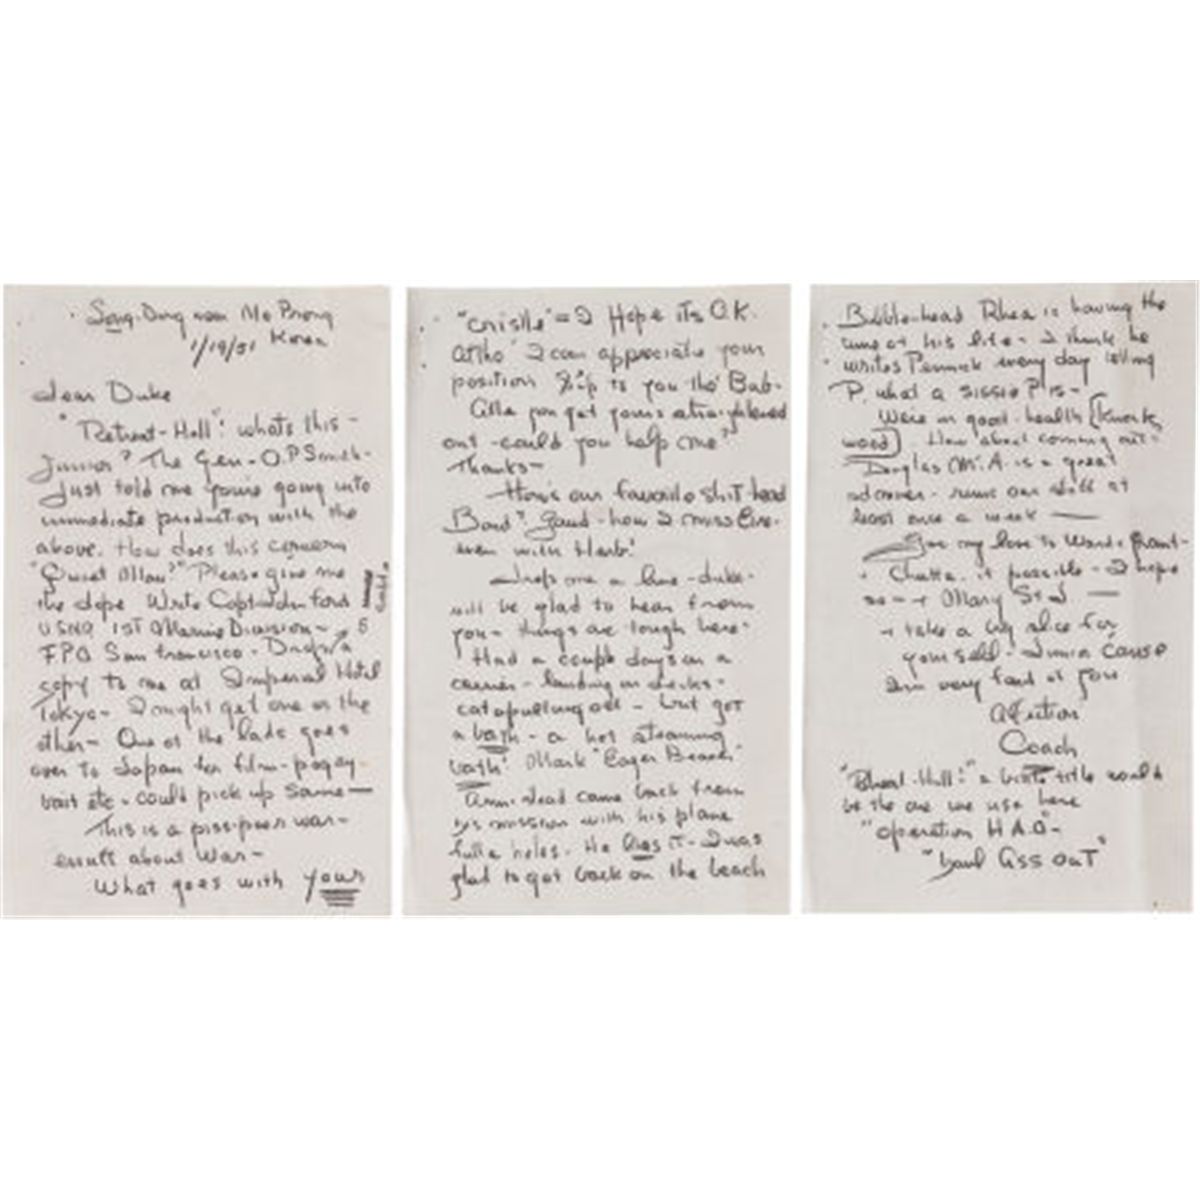 Song-Dong near
Korea
1/19/51
Dear Duke
"Retreat-Hell": whats this-
Junior? The Gen-O.P Smith-
Just told me you're going into
immediate production with the
above. How does this concern
"Quiet Man?" Please give me
the dope Write Capt John Ford
USNR 1ST Marine Division-
FPO San Francisco- Drop a
copy to me at Imperial Hotel
Tokyo- I might get one or the
other- One of the lads goes
over to Japan for film-pogey-
bait etc- could pick up same-
This is a piss-poor war-
enuff about War-
What goes with your
"cristle"= I Hope its O.K.
Altho' I can appreciate your
position to you tho' Bab-
you get yours straightened
out-could you help me?
Thanks-
How's our favorite shit-head
Bond? Gawd-how I miss
even with Herb!
Drop me a line-duke-
will be glad to hear from
you- things are tough here-
Had a couple days on a
carrier- landing on decks-
catapulting off- but got
a bath- a hot steaming
bath! Mark "Eager Beach"
Armistead came back from
his mission with his plane
full a holes. He has it- I was
glad to get back on the beach
Bubble-head Rhea is having the
time of his life- I think he
writes Pennick every day telling
P. what a sissie P is-
We're in good-health [knock
wood]. How about coming out-
Douglas Mc.A. is a great
admirer- runs our stuff at
least once a week
Give my love to Ward & Grant-
Chatta. if possible- I hope
so- + Mary St J
+ take a big slice for
yourself- cause
Im very fond of you
Coach
"Retreat-Hell!" a title would
be the one we use here
"operation H A O"-
"haul ass out"